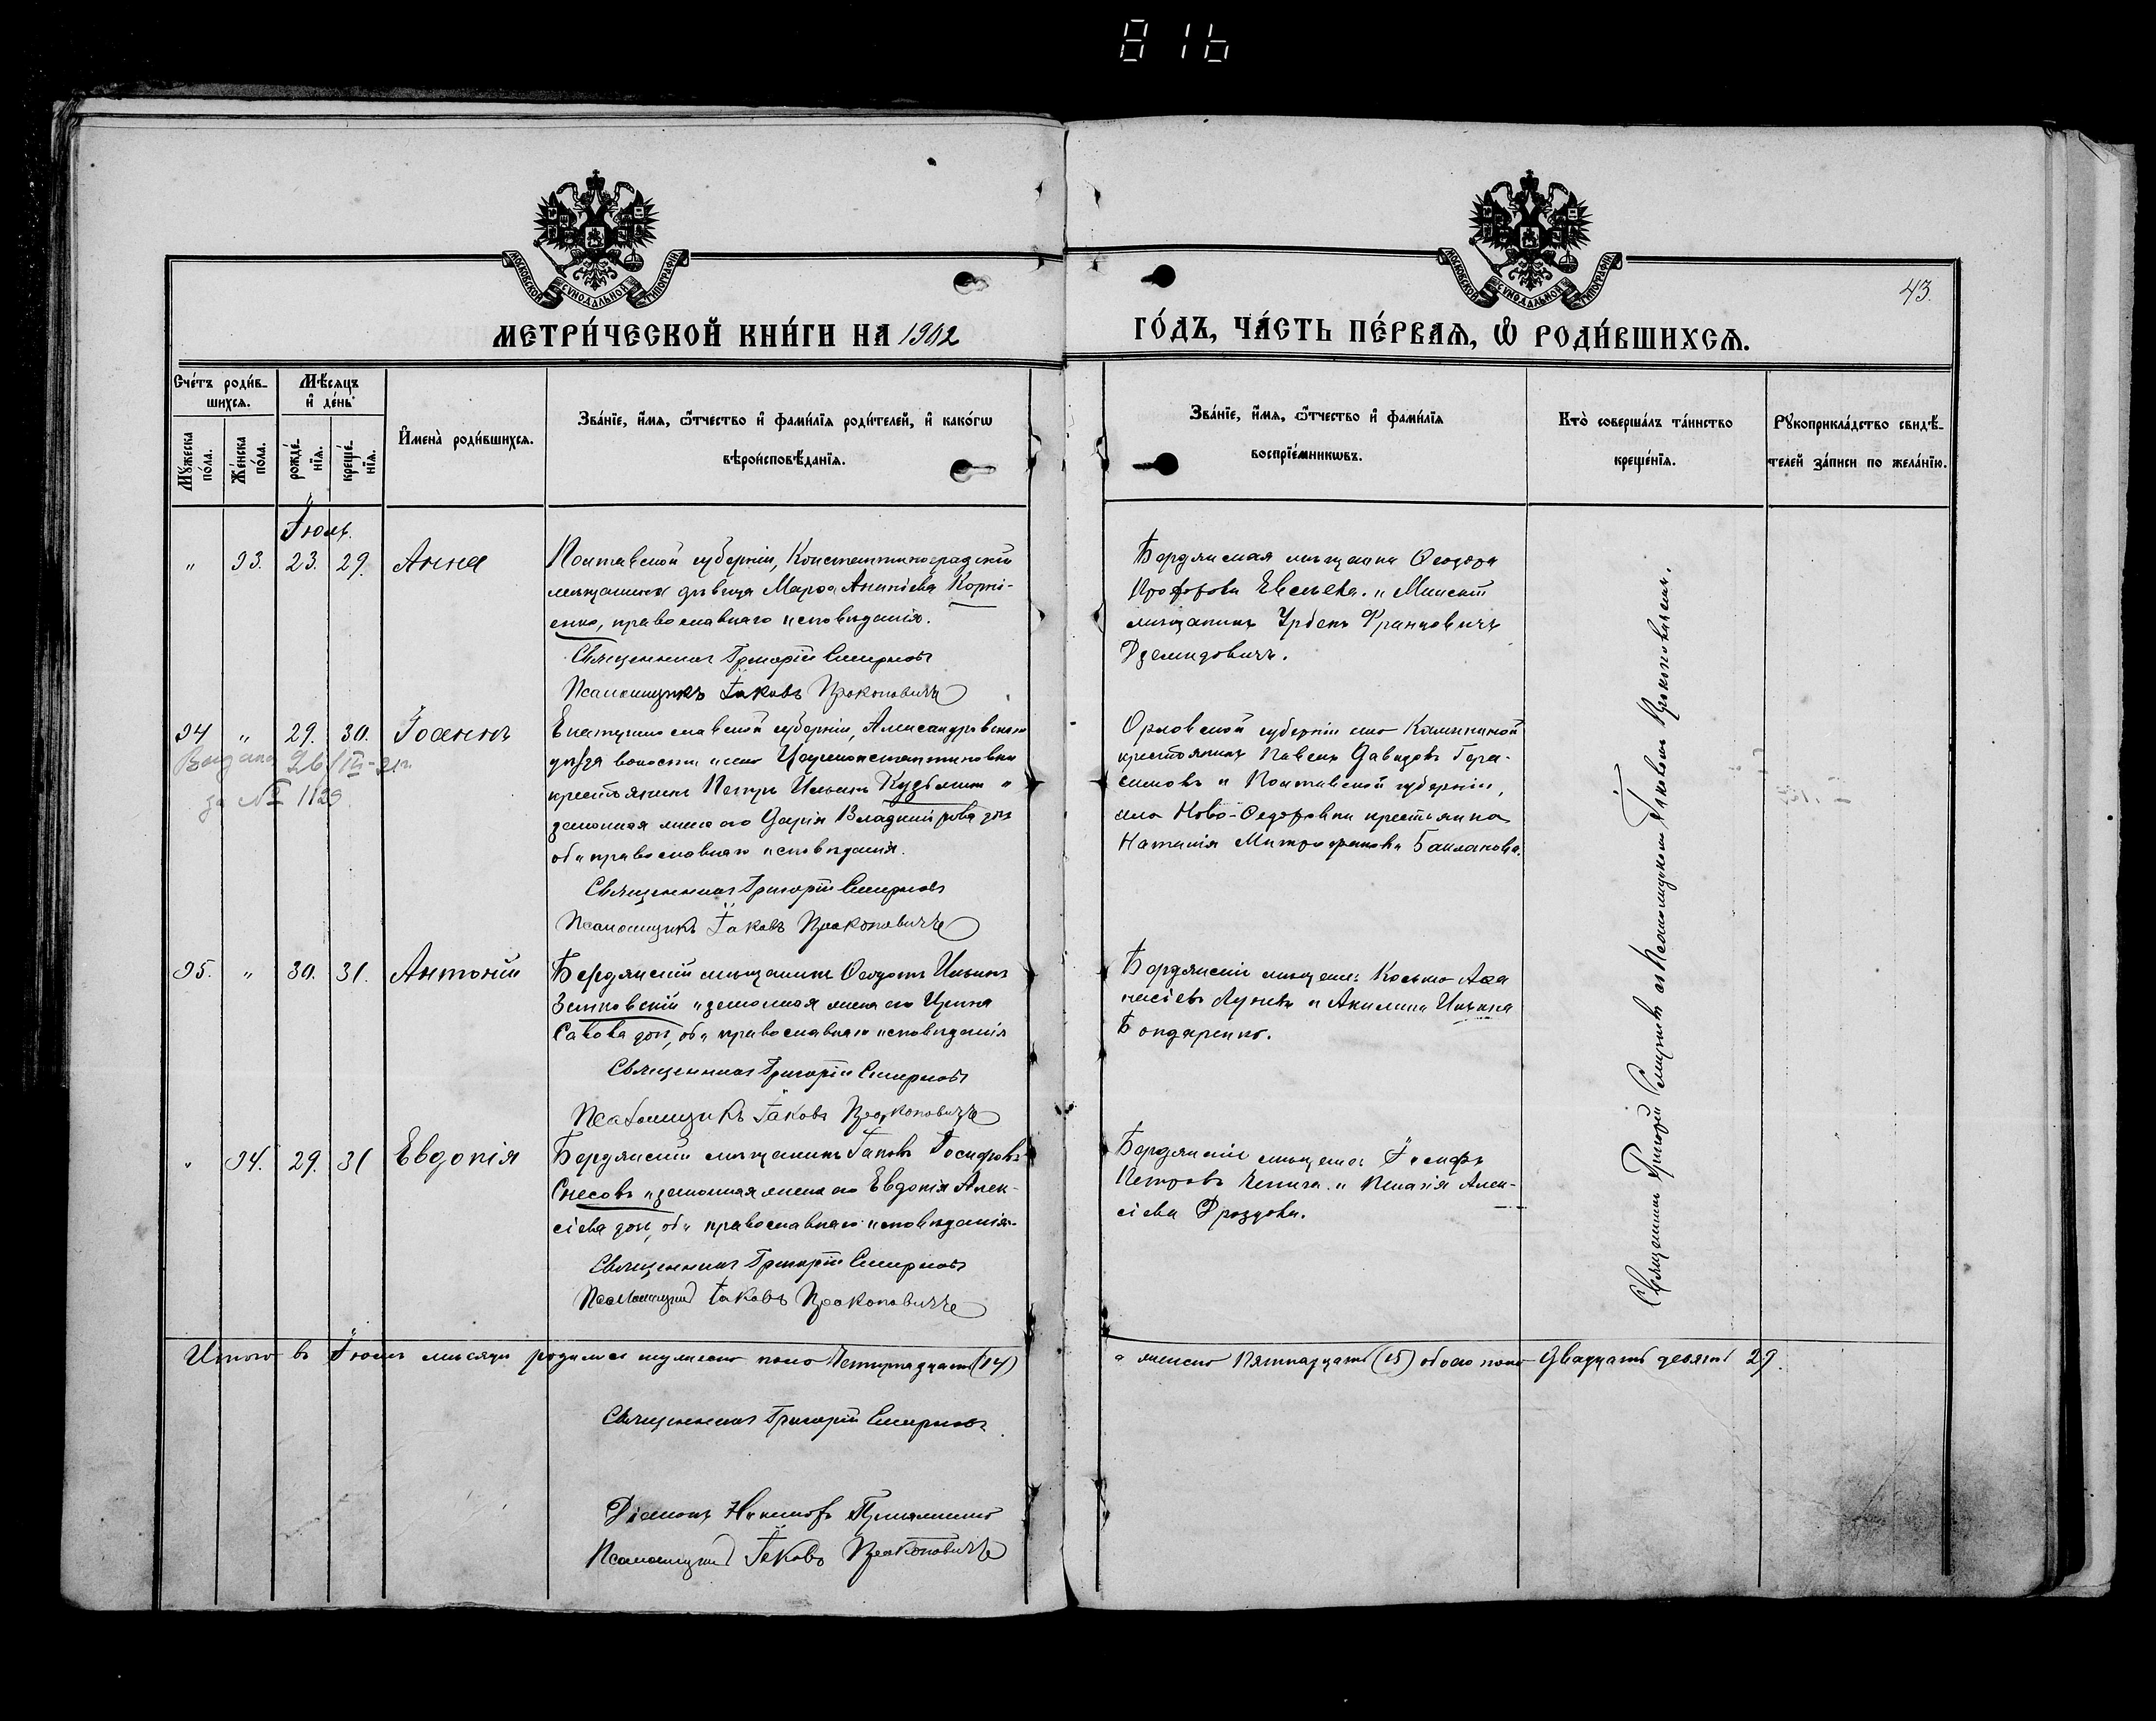 816
МОСКОВСКОЙ СѴНОДАЛЬНОЙ ТИПОГРАФІИ
МОСКОВСКОЙ СѴНОДАЛЬНОЙ ТИПОГРАФІИ
43.
МЕТРИ́ЧЕСКОЙ КНИ́ГИ НА 1902
ГО́ДЪ, ЧА́СТЬ ПЕ́РВАѦ, Ѡ РОДИ́ВШИХСѦ.
Сче́тъ роди́в-
шихсѧ.
Мѣ́сяцъ
и де́нь
Мꙋ́жеска
по́ла.
Же́нска
по́ла.
рожде́-
нїѧ.
креще́-
нїѧ.
Имена̀ роди́вшихсѧ.
Зва́нїе, и́мѧ, ѻ́тчество и фами́лїѧ роди́телей, и како́гѡ
вѣроисповѣ́данїѧ.
Зва́нїе, и́мѧ, ѻ́тчество и фами́лїѧ
воспрїе́мникѡвъ.
Кто̀ соверша́лъ та́инство
креще́нїѧ.
Рꙋкоприкла́дство свидѣ́-
телей за́писи по жела́нїю.
Іюль.
" 93. 23. 29. Анна
Полтавской губерніи, Константиноградская
мѣщанка дѣвица Марѳа Ананіева Корні-
енко, православнаго исповѣданія.
Священникъ Григорій Смирновъ
Псаломщикъ Іаковъ Прокоповичъ
Бердянская мѣщанка Ѳеодора
Евсѣева. и Минскій
мѣщанинъ Урбанъ Францовичъ
Дземидовичъ.
94 " 29. 30. Іоаннъ
Выдана 26/III-21г.
за № 1120
Екатеринославской губерніи, Александровскаго
уѣзда волости и села Цареконстантиновки
крестьянинъ Петръ Ильинъ Кудьминъ и
законная жена его Дарія Владимірова дочь
оба православнаго исповѣданія.
Священникъ Григорій Смирновъ
Псаломщикъ Іаковъ Прокоповичъ
Орловской губерніи села Калинкиной
крестьянинъ Павелъ Давидовъ Гера-
симовъ и Полтавской губерніи,
села Ново-Ѳедоровки крестьянка
Наталія Митрофанова Бакланова.
95. " 30. 31. Антоній
Бердянскій мѣщанинъ Ѳеодотъ Ильинъ
Зеньковскій и законная жена его Ирина
Савова дочь, оба православнаго исповѣданія
Священникъ Григорій Смирновъ
Псаломщикъ Іаковъ Прокоповичъ
Бердянскій мѣщанинъ Косьма Аѳа
насіевъ и Акилина Ильина
Бондаренко.
" 94. 29. 31 Евдокія
Бердянскій мѣщанинъ Іаковъ Іосифовъ
Снесовъ и законная жена его Евдокія Алек-
сіева дочь, оба православнаго исповѣданія.
Священникъ Григорій Смирновъ
Псаломщикъ Іаковъ Прокоповичъ
Бердянскій мѣщанинъ Іосифъ
Петровъ и Пелагія Алек-
сіева Дроздова.
Священникъ Григорій Смирновъ съ Псаломщикомъ Іаковомъ Прокоповичемъ.
Итого въ Іюлѣ мѣсяцѣ родилось мужеска пола Четырнадцать (14)
а женска Пятнадцать (15) обоего пола Двадцать девять 29.
Священникъ Григорій Смирновъ
Діаконъ
Псаломщикъ Іаковъ Прокоповичъ